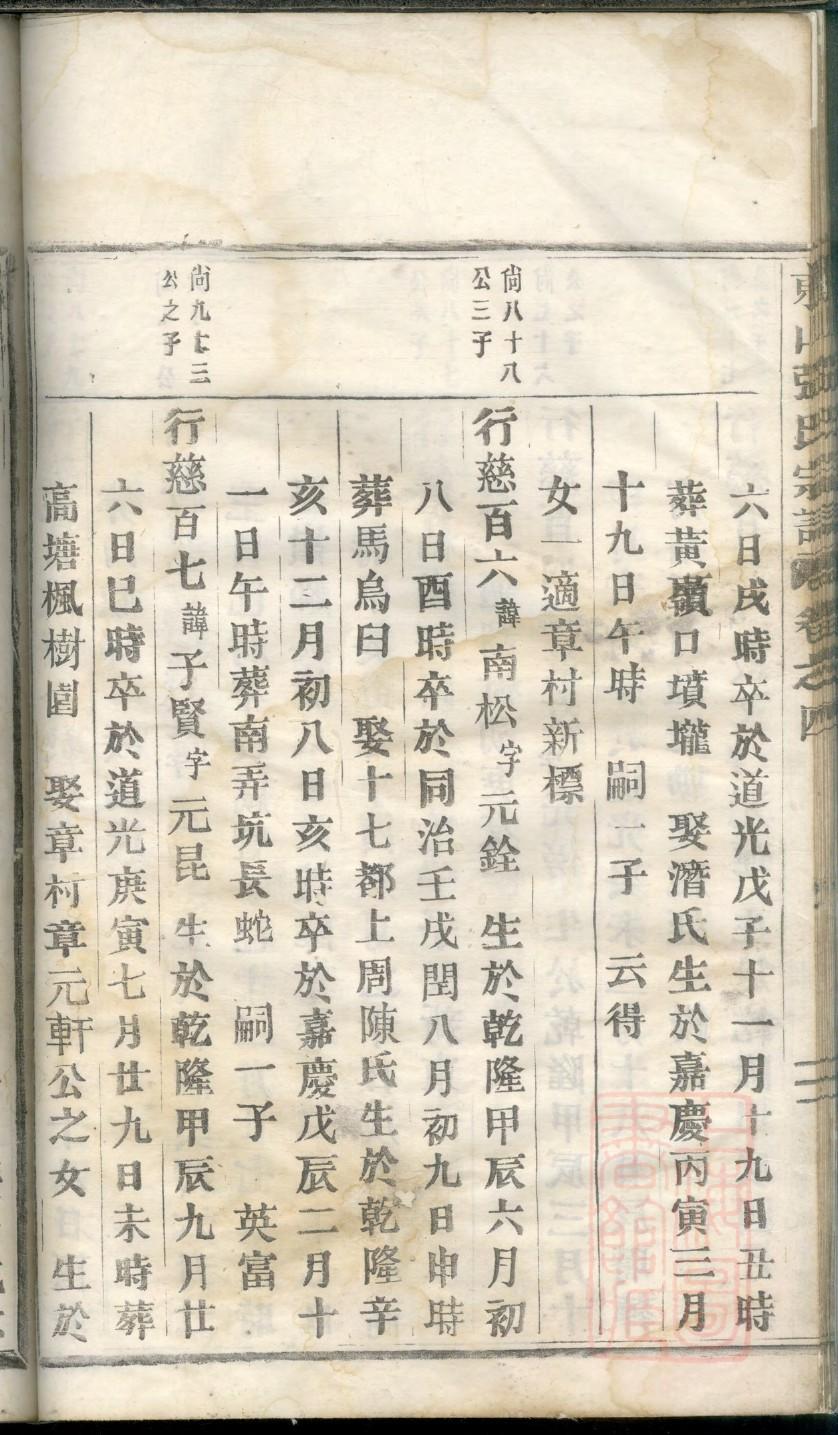 東山張氏宗譜卷之四
六日戌時卒於道光戊子十一月十九日丑時
葬黃口墳壠 娶潛氏生於嘉慶丙寅三月
十九日午時 嗣一子 云得
女一適章村新標
尙八十八
公三子
行慈百六諱南松字元銓 生於乾隆甲辰六月初
八日酉時卒於同治壬戌閏八月初九日申時
葬馬烏曰 娶十七都上周陳氏生於乾隆辛
亥十二月初八日亥時卒於嘉慶戊辰二月十
一日午時葬南弄坑長蛇 嗣一子 英富
尙九十三
公之子
行慈百七諱子賢字元昆 生於乾隆甲辰九月廿
六日巳時卒於道光庚寅七月廿九日未時葬
高塘楓樹園 娶章村章元軒公之女 生於